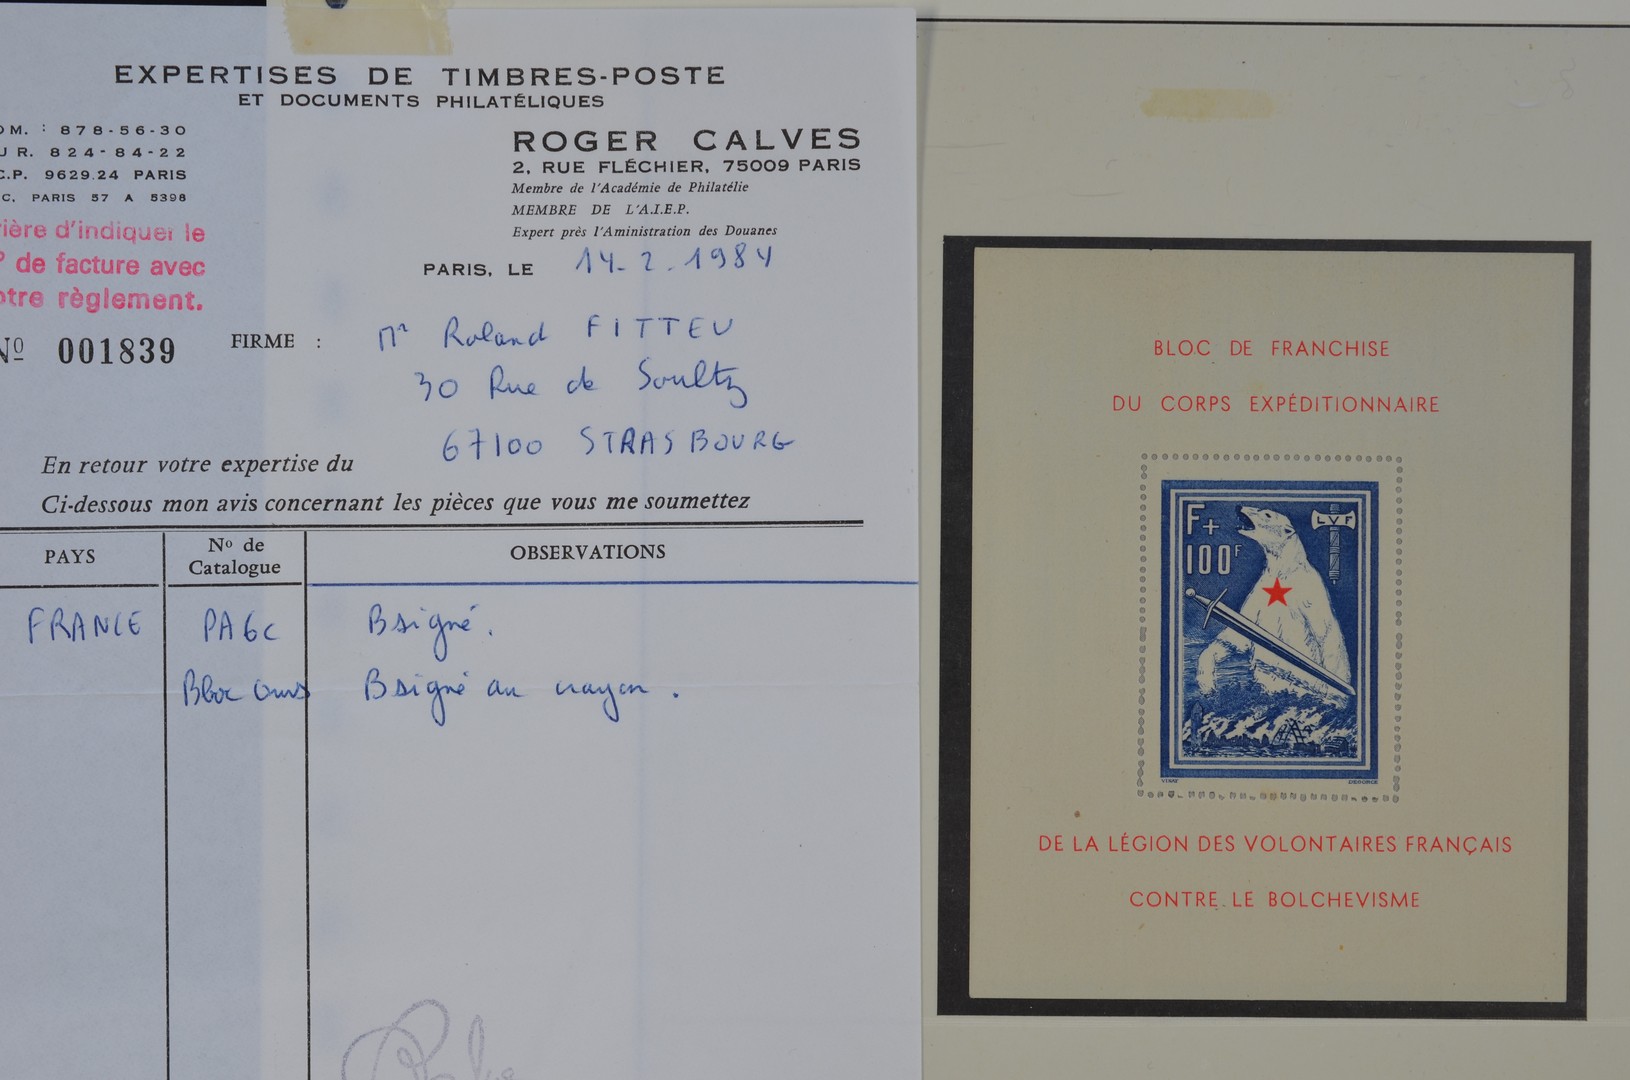 EXPERTISES DE TIMBRES-POSTE
ET DOCUMENTS PHILATÉLIQUES
OM. : 878-56-30
UR. 824-84-22
C.P. 9629.24 PARIS
C. PARIS 57 A 5398
ROGER CALVES
2, RUE FLÉCHIER, 75009 PARIS
Membre de l'Académie de Philatélie
MEMBRE DE L'A.I.E.P.
Expert près l'Aministration des Douanes
ière d'indiquer le
° de facture avec
otre règlement.
PARIS, LE 14-2-1984
Nº 001839
FIRME : Mr Roland FITTEU
30 Rue de Soultz
67100 STRASBOURG
En retour votre expertise du
Ci-dessous mon avis concernant les pièces que vous me soumettez
PAYS
Nº de
Catalogue
OBSERVATIONS
FRANCE PA6c Bsigné.
Bloc Ours Bsigné au crayon.
BLOC DE FRANCHISE
DU CORPS EXPÉDITIONNAIRE
F+
100F
LVF
DE LA LÉGION DES VOLONTAIRES FRANÇAIS
CONTRE LE BOLCHEVISME